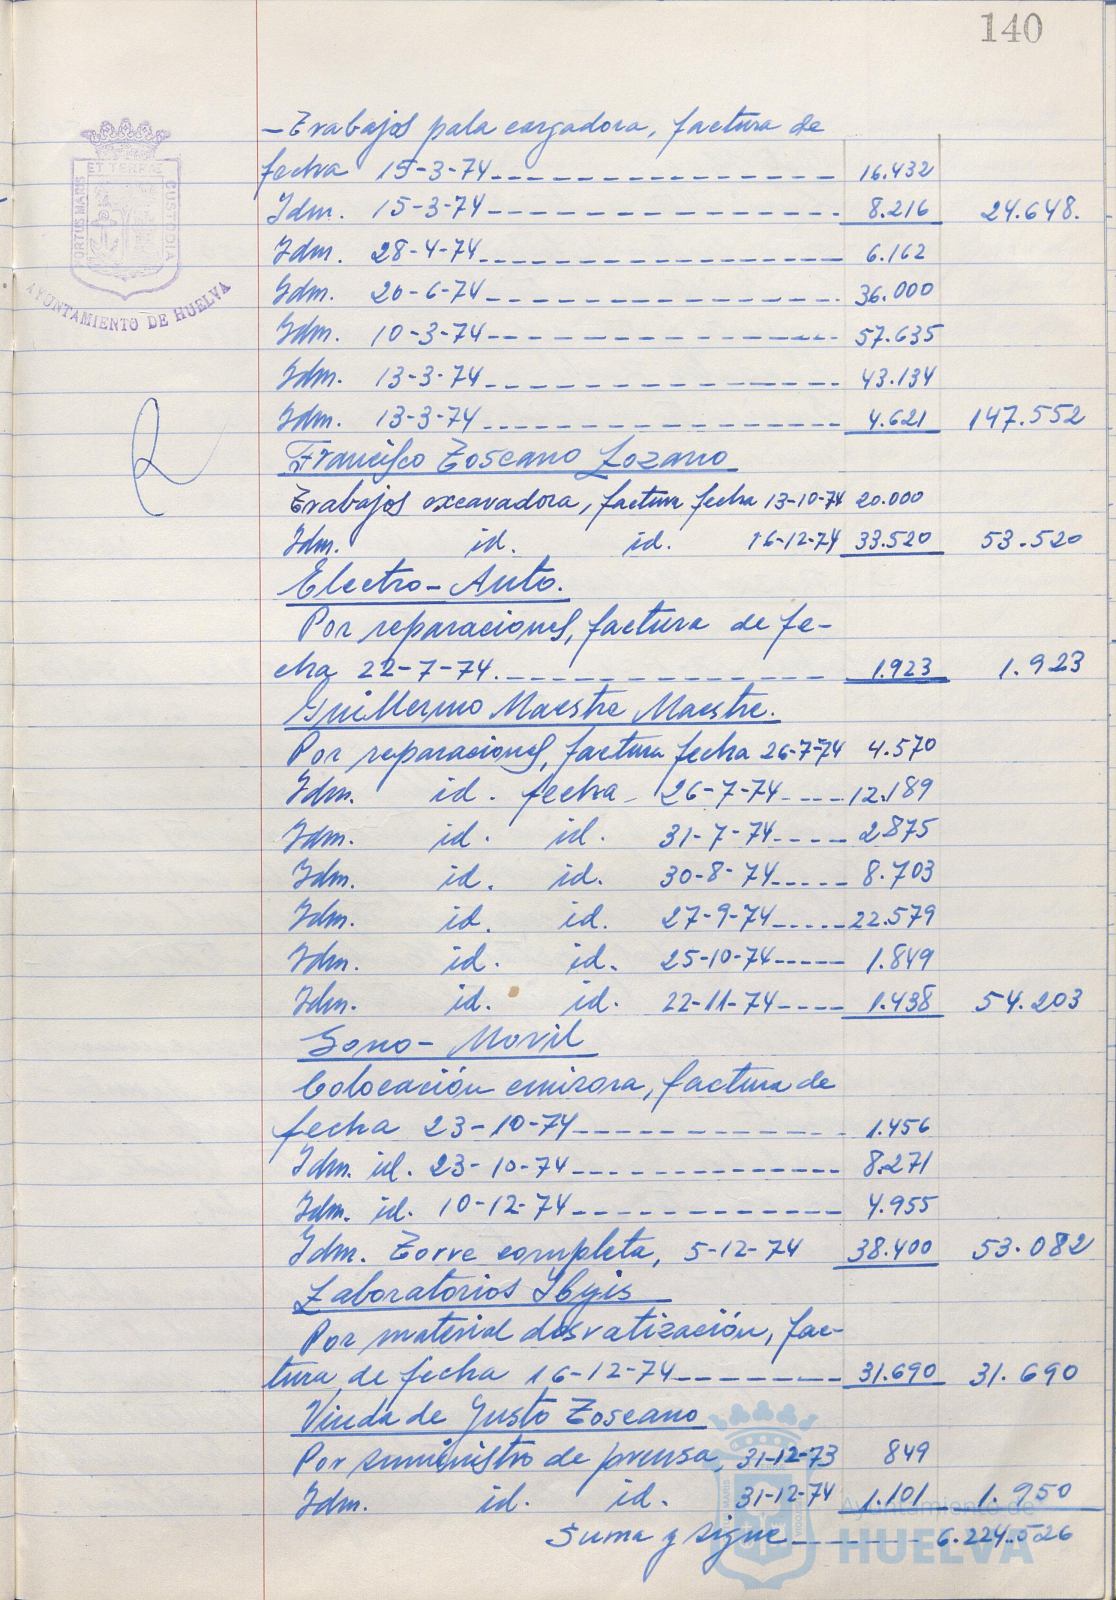 140
PORTUS MARIS ET TERRAE CUSTODIA
AYUNTAMIENTO DE HUELVA
- Trabajos pala cargadora, factura de
fecha 15-3-74 16.432
Idm. 15-3-74 8.216 24.648.
Idm. 28-4-74 6.162
Idm. 20-6-74 36.000
Idm. 10-3-74 57.635
Idm. 13-3-74 43.134
Idm. 13-3-74 4.621 147.552
Francisco Toscano Lozano
Trabajos excavadora, factura fecha 13-10-74 20.000
Idm. id. id. 16-12-74 33.520 53.520
Electro-Auto.
Por reparaciones, factura de fe-
cha 22-7-74. 1.923 1.923
Guillermo Maestre Maestre.
Por reparaciones, factura fecha 26-7-74 4.570
Idm. id. fecha 26-7-74 12.189
Idm. id. id. 31-7-74 2.875
Idm. id. id. 30-8-74 8.703
Idm. id. id. 27-9-74 22.579
Idm. id. id. 25-10-74 1.849
Idm. id. id. 22-11-74 1.438 54.203
Sono-Movil
Colocación emisora, factura de
fecha 23-10-74 1.456
Idm. id. 23-10-74 8.271
Idm. id. 10-12-74 4.955
Idm. Torre completa, 5-12-74 38.400 53.082
Laboratorios Ibyis
Por material desratización, fac-
tura de fecha 16-12-74 31.690 31.690
Viuda de Justo Toscano
Por suministro de prensa, 31-12-73 849
Idm. id. id. 31-12-74 1.101 1.950
Suma y sigue 6.224.526
Ayuntamiento de
HUELVA